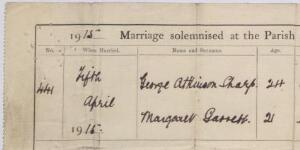 1915 Marriage solemnised at the Parish
No. When Married. Name and Surname. Age.
441 Fifth April 1915. George Atkinson Sharp. 24
Margarett Garrett. 21